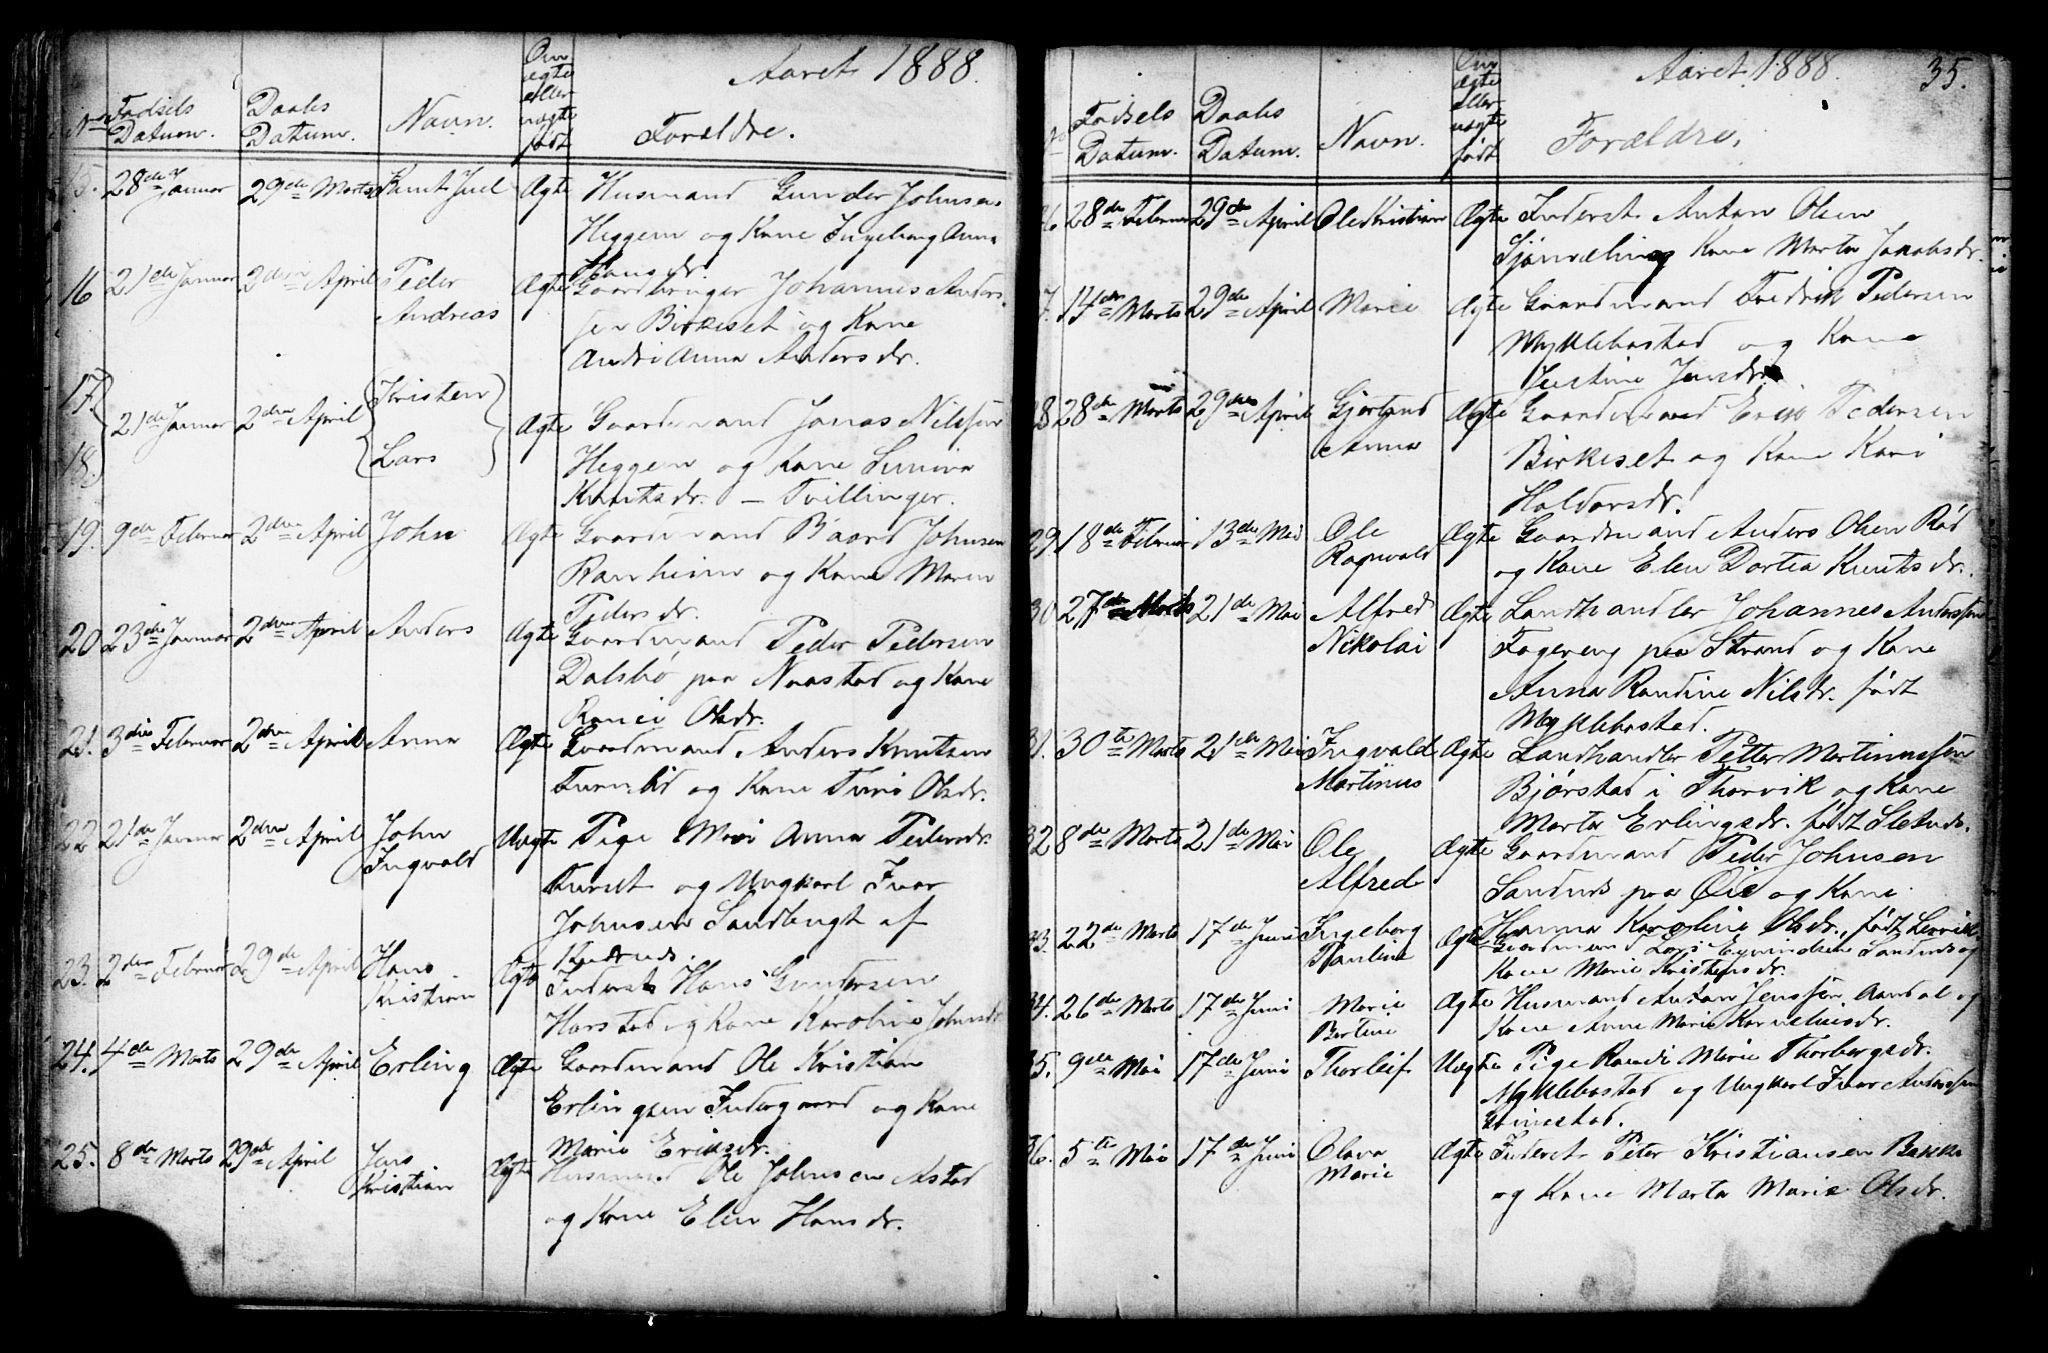 Aaret 1888.
No Fødsels Datum. Daabs Datum. Navn. Om ægte eller uægte født Forældre.
15. 28de Januar 29de Marts Knut Juel Ægte Husmand Gunder Johnsen
Heggem og Kone Ingeborg Anna
Hansdr.
16 21de Januar 2den April Peder Andreas Ægte Gaardbruger Johannes Anders
sen Birkeset og Kone
Andrianna Andersdr.
17. 18. 21de Januar 2den April Kristen Lars Ægte Gaardmand Jonas Nilssen
Heggem og Kone Suniva
Knutsdr. – Tvillinger.
19. 9de Februar 2den April John Ægte Gaardmand Baard Johnsen
Ranheim og Kone Maren
Pedersdr.
20. 23de Januar 2den April Anders Ægte Gaardmand Peder Pedersen
Dalsbø paa Naastad og Kone
Olsdr.
21. 3die Februar 2den April Anna Ægte Gaardmand Anders Knutsen
og Kone Turi Olsdr.
22 21de Januar 2den April John Ingvald Uægte Pige Mari Anna Pedersdr.
og Ungkarl Ivar
Johnsen Sandbugt af
23. 2den Februar 29de April Hans Kristian Ægte Inderst Hans Gundersen
Harstad og Kone Karoline Johnsdr
24. 4de Marts 29de April Erling Ægte Gaardmand Ole Kristian
Erlingsen Indergaard og Kone
Marie Eriksdr.
25. 8de Marts 29de April Jens Kristian Ægte Husmand Ole Johnsen
og Kone Elen Hansdr.
Aaret 1888. 35.
No Fødsels Datum. Daabs Datum. Navn. Om ægte eller uægte født Forældre.
26. 28de Februar 29de April Ole Kristian Ægte Inderst Anton Olsen
og Kone Marta Jakobsdr.
7. 14de Marts 29de April Marie Ægte Gaardmand Fredrik Pedersen
Myklebostad og Kone
Justine Jensdr.
28 28de Marts 29de April Gjertrud Anna Ægte Gaardmand Erik Pedersen
Birkeset og Kone Kari
Haldorsdr.
29. 18de Februar 13de Mai Ole Ragnvald Ægte Gaardmand Anders Olsen Rød
og Kone Elen Dortea Knutsdr.
30 27de Marts 21de Mai Alfred Nikolai Ægte Landhandler Johannes Anderssen
Fagereng paa Strand og Kone
Anna Randine Nilsdr. født
Myklebostad.
31. 30te Marts 21de Mai Ingvald Martinus Ægte Landhandler Petter Martinussen
Bjørstad i Thorvik og Kone
Marta Erlingsdr. født
32 8de Marts 21de Mai Ole Alfred Ægte Gaardmand Peder Johnsen
Sandnes paa Øie og Kone
Hanna Karoline Olsdr., født
33. 22de Marts 17de Juni Ingeborg Pauline Ægte Gaardmand Lars Eyvindsen Sandnes og
Kone Marie Kristensdr.
34. 26de Marts 17de Juni Marie Bertine Ægte Husmand Anton Jenssen Aandal og
Kone Anne Marie Korneliusdr.
35. 9de Mai 17de Juni Thorleif Uægte Pige Randi Marie Thorbergsdr.
Myklebostad og Ungkarl Ivar Anderssen
36. 5te Mai 17de Juni Olava Marie Ægte Inderst Peter Kristiansen Bakke
og Kone Marta Marie Olsdr.